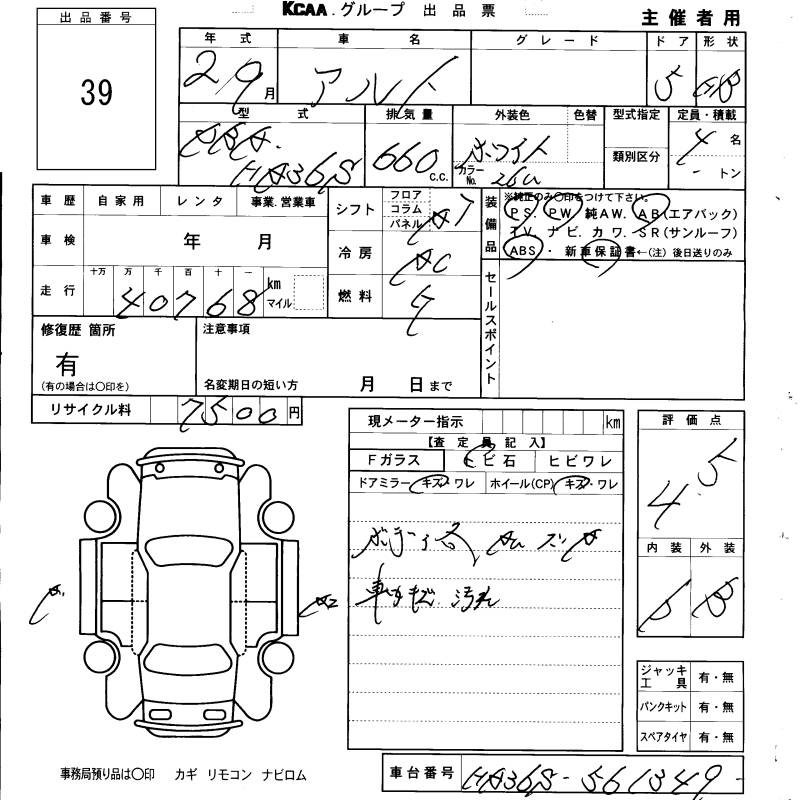 KCAA.グループ 出品票
主催者用
出品番号
39
年式 車名 グレード ドア 形状
2/9月 アルト 5 HB
型式 排気量 外装色 色替 型式指定 定員・積載
DBA-HA36S 660 c.c. ホワイト 類別区分 4名
カラーNo. 26U - トン
車歴 自家用 レンタ 事業.営業車
シフト フロア コラム パネル AT
装備品
※純正のみ○印をつけて下さい。
PS. PW. 純AW. AB(エアバック)
TV. ナビ. カワ. SR(サンルーフ)
ABS・ 新車保証書←(注)後日送りのみ
車検 年 月
冷房 AC
走行 十万 万 千 百 十 一 km マイル
40768
燃料 ガ
セールスポイント
修復歴 箇所
有
(有の場合は○印を)
注意事項
名変期日の短い方 月 日まで
リサイクル料 7500円
現メーター指示 km
【査定員記入】
Fガラス トビ石 ヒビワレ
ドアミラー キズ・ワレ ホイール(CP) キズ・ワレ
ボディ各
車内キズ. 汚れ
評価点
4.5
内装 外装
B B
A1
A2
ジャッキ工具 有・無
パンクキット 有・無
スペアタイヤ 有・無
事務局預り品は○印 カギ リモコン ナビロム
車台番号 HA36S-561349-